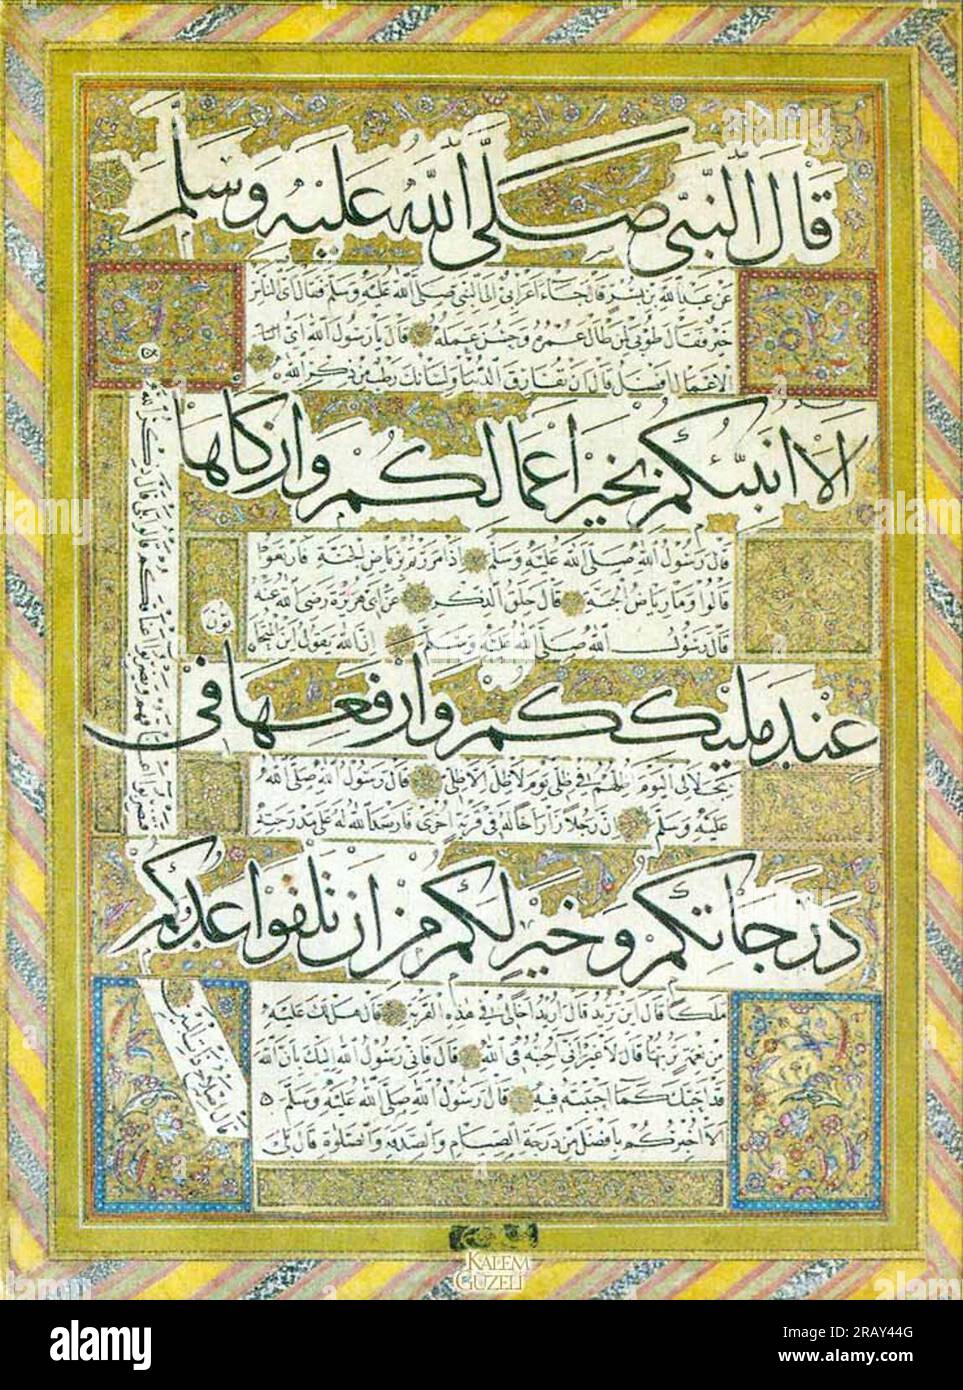 قال النبي صلى الله عليه وسلم
عن عبد الله بن بسر قال جاء اعرابي الى النبي صلى الله عليه وسلم فقال اي الناس
خير فقال طوبى لمن طال عمره وحسن عمله قال يا رسول الله اي
الاعمال افضل قال ان تفارق الدنيا ولسانك رطب من ذكر الله
الا انبئكم بخير اعمالكم وازكاها
قال رسول الله صلى الله عليه وسلم اذا مررتم برياض الجنة فارتعوا
قالوا وما رياض الجنة قال حلق الذكر عن ابي هريرة رضي الله عنه
قال رسول الله صلى الله عليه وسلم ان الله يقول اين المتحابون
عند مليككم وارفعها في
بجلالي اليوم اظلهم في ظلي يوم لا ظل الا ظلي قال رسول الله صلى الله
عليه وسلم ان رجلا زار اخا له في قرية اخرى فارصد الله له على مدرجته
درجاتكم وخير لكم من ان تلقوا عدوكم
ملكا قال اين تريد قال اريد اخا لي في هذه القرية قال هل لك عليه
من نعمة تربها قال لا غير اني احببته في الله قال فاني رسول الله اليك بان الله
قد احبك كما احببته فيه قال رسول الله صلى الله عليه وسلم
الا اخبركم بافضل من درجة الصيام والصدقة والصلوة قال بلى
قال اصلاح ذات البين
KALEM
GÜZELİ
alamy
Image ID: 2RAY44G
www.alamy.com